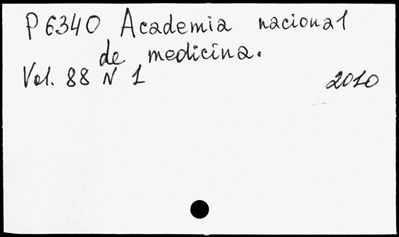 P 6340 Academia nacional
de medicina.
Vol. 88 N 1 2010